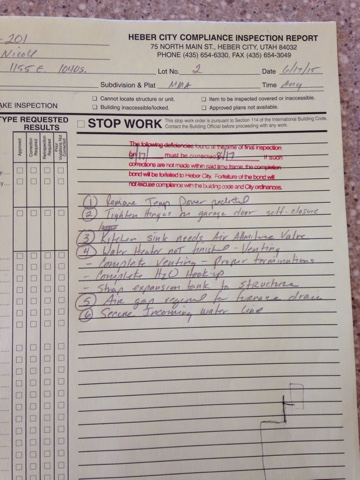 -201
Nicoll
1155 E. 1040 S.
HEBER CITY COMPLIANCE INSPECTION REPORT
75 NORTH MAIN ST., HEBER CITY, UTAH 84032
PHONE (435) 654-6330, FAX (435) 654-3049
Lot No. 2 Date 6/17/15
Subdivision & Plat Time Any
Cannot locate structure or unit.
Item to be inspected covered or inaccessible.
Building inaccessible/locked.
Approved plans not available.
AKE INSPECTION
TYPE REQUESTED
RESULTS
Approved
Correction Required
Reinspection Required
STOP WORK
This stop work order is pursuant to Section 114 of the International Building Code.
Contact the Building Official before proceeding with any work.
The following deficiencies found at the time of final inspection
6/17 must be corrected 8/17 if such
corrections are not made within said time frame, the completion
bond will be forfeited to Heber City. Forfeiture of the bond will
not excuse compliance with the building code and City ordinances.
① Remove Temp Power pedestal
② Tighten hinges on garage door self-closure
③ Kitchen sink needs Air Admittance Valve
④ Water Heater not finished - Venting
Complete Venting - Proper terminations
- Complete H2O Hook up
- Strap expansion tank to structure
⑤ Air gap required for drain
⑥ Secure Incoming water line